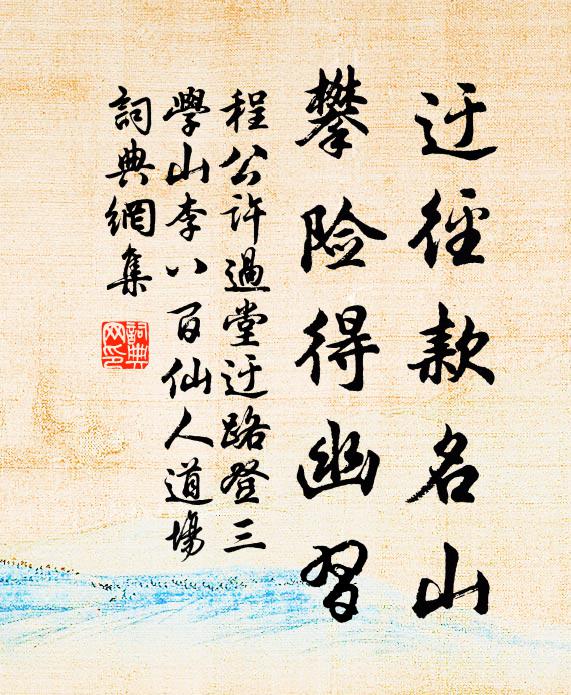 迂徑款名山
攀险得幽習
程公许過堂迂路登三
學山李八百仙人道場
詞典網集
詞典網印